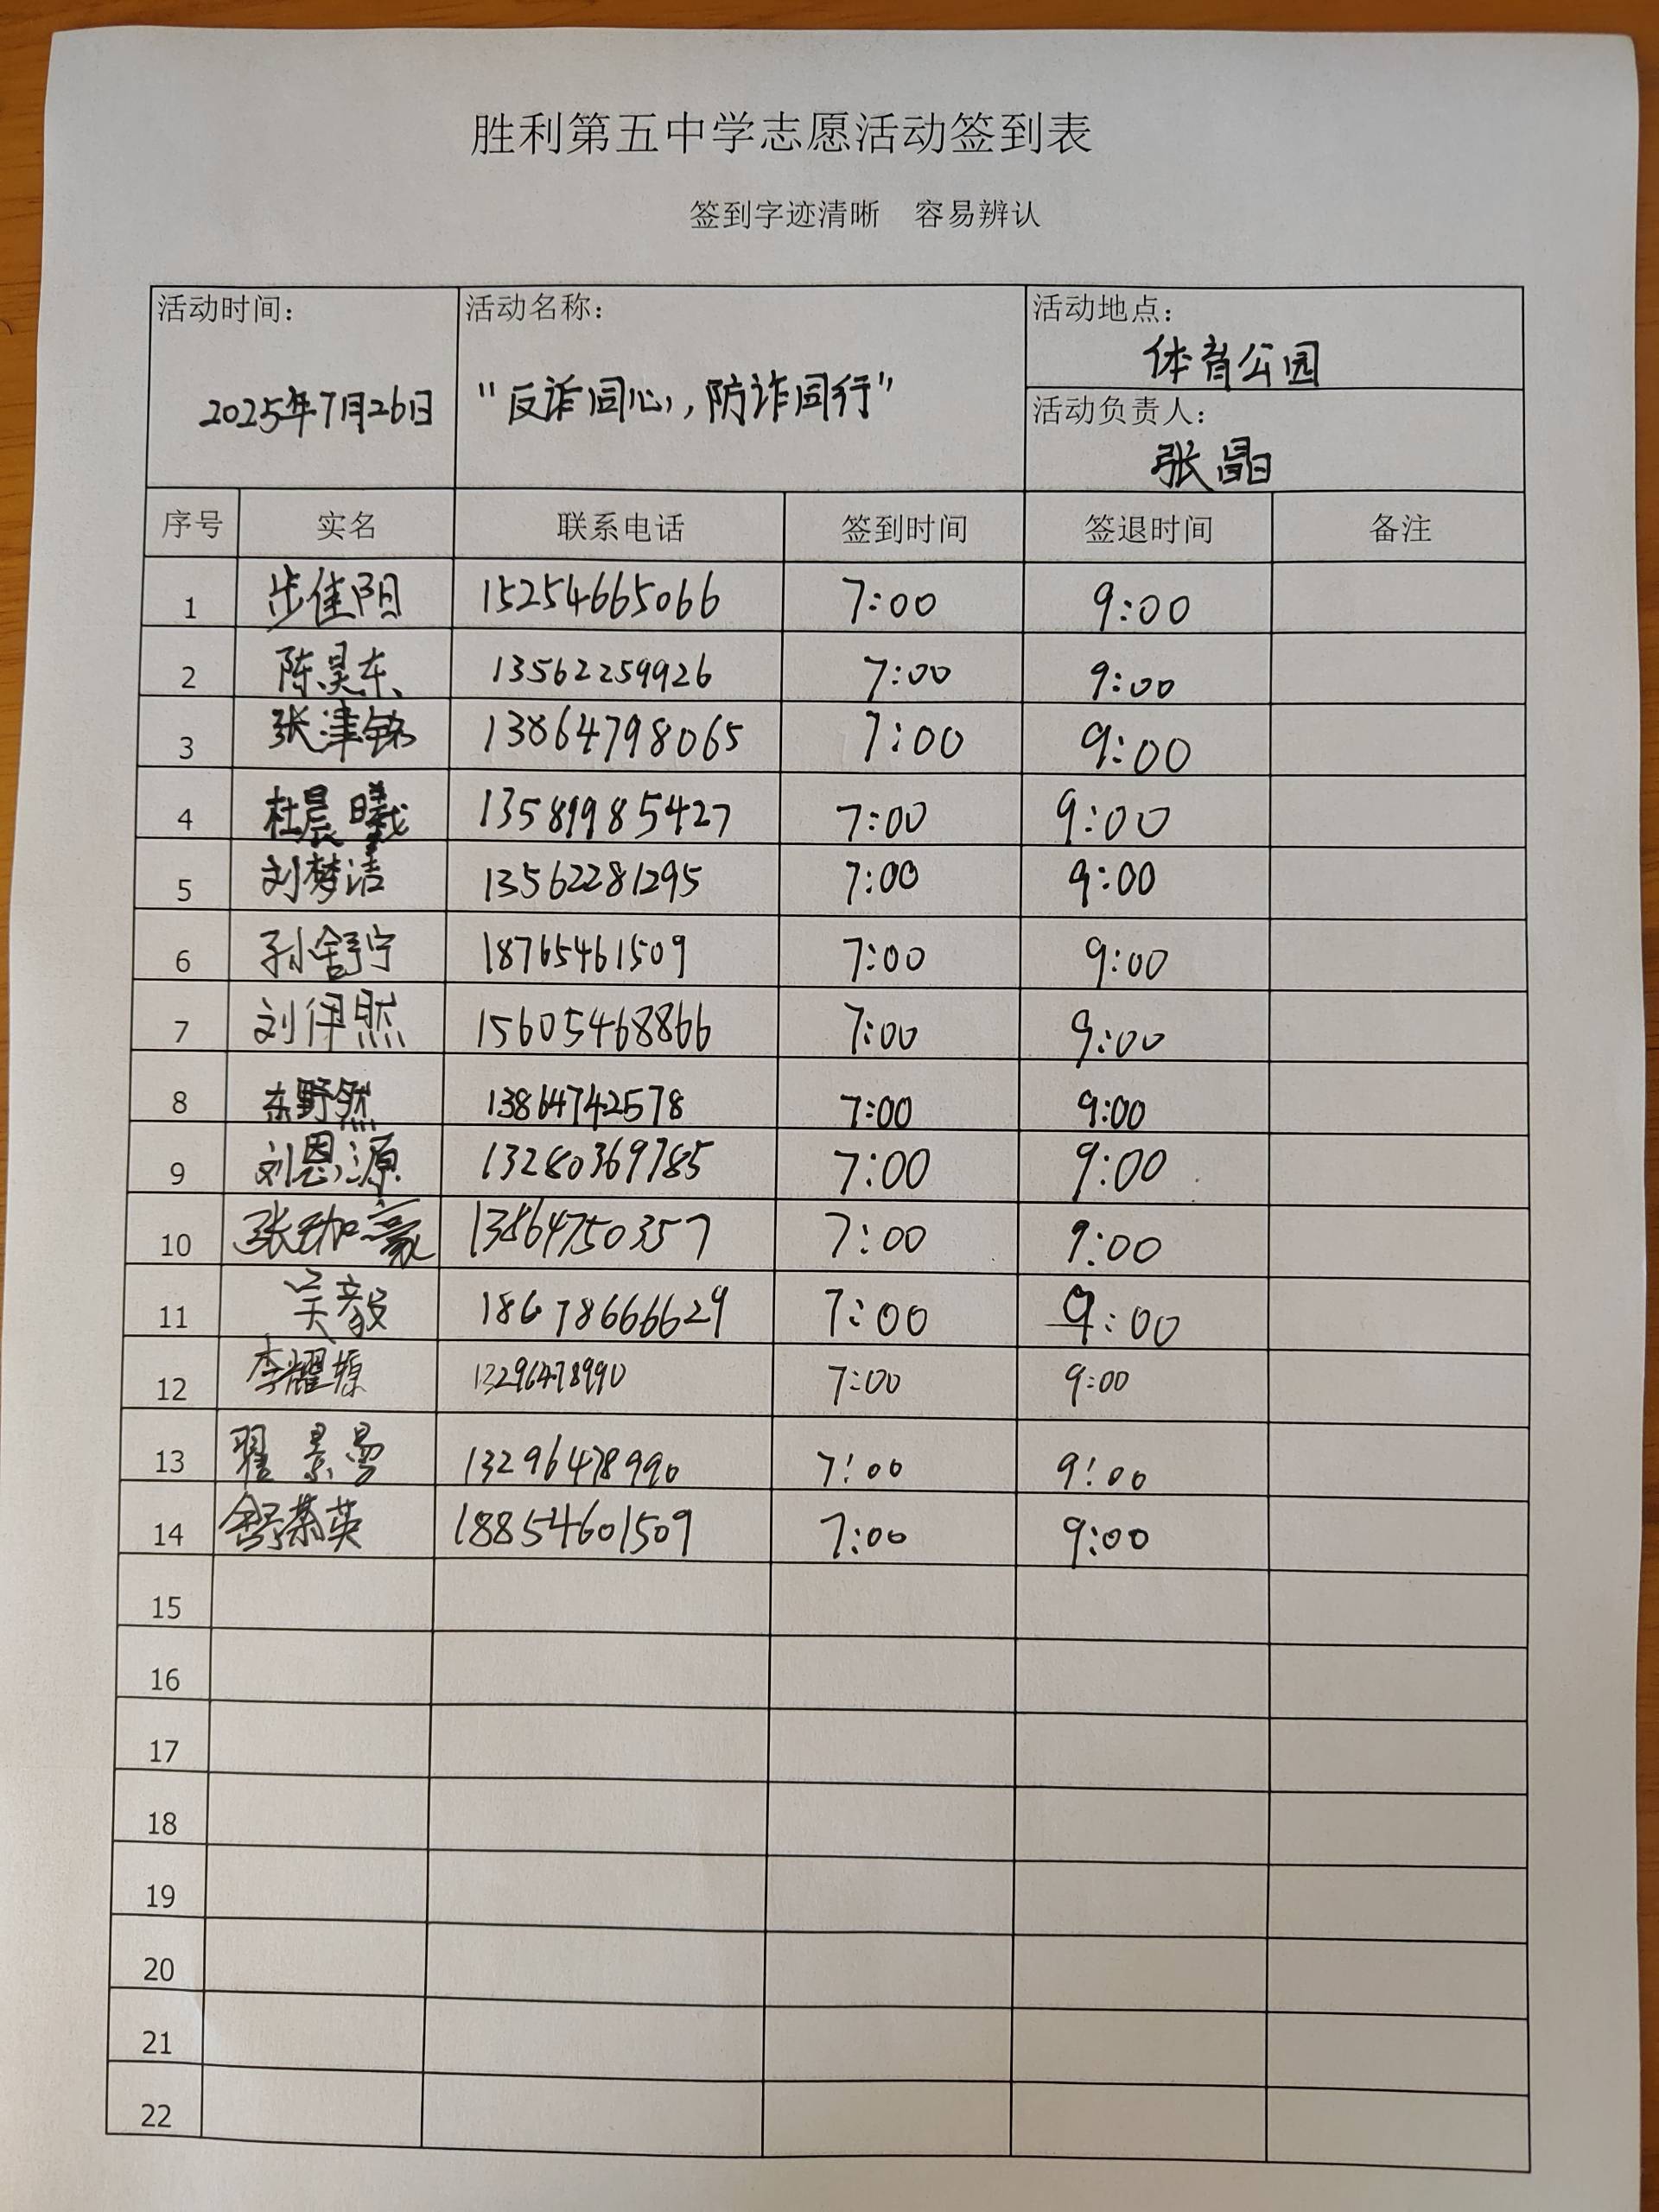 胜利第五中学志愿活动签到表
签到字迹清晰 容易辨认
活动时间: 活动名称: 活动地点:
体育公园
2025年7月26日 "反诈同心,防诈同行"
活动负责人:
张晶
序号 实名 联系电话 签到时间 签退时间 备注
1 步佳阳 15254665066 7:00 9:00
2 陈昊东 13562259926 7:00 9:00
3 张津铭 13864798065 7:00 9:00
4 杜晨曦 13589985427 7:00 9:00
5 刘梦洁 13562281295 7:00 9:00
6 孙舒宁 18765461509 7:00 9:00
7 刘伊然 15605468866 7:00 9:00
8 东野然 13864742578 7:00 9:00
9 刘恩源 13280369785 7:00 9:00
10 张珈豪 13864750357 7:00 9:00
11 吴毅 18678666629 7:00 9:00
12 李耀 13296478990 7:00 9:00
13 翟景 13296478990 7:00 9:00
14 舒荣英 18854601509 7:00 9:00
15
16
17
18
19
20
21
22